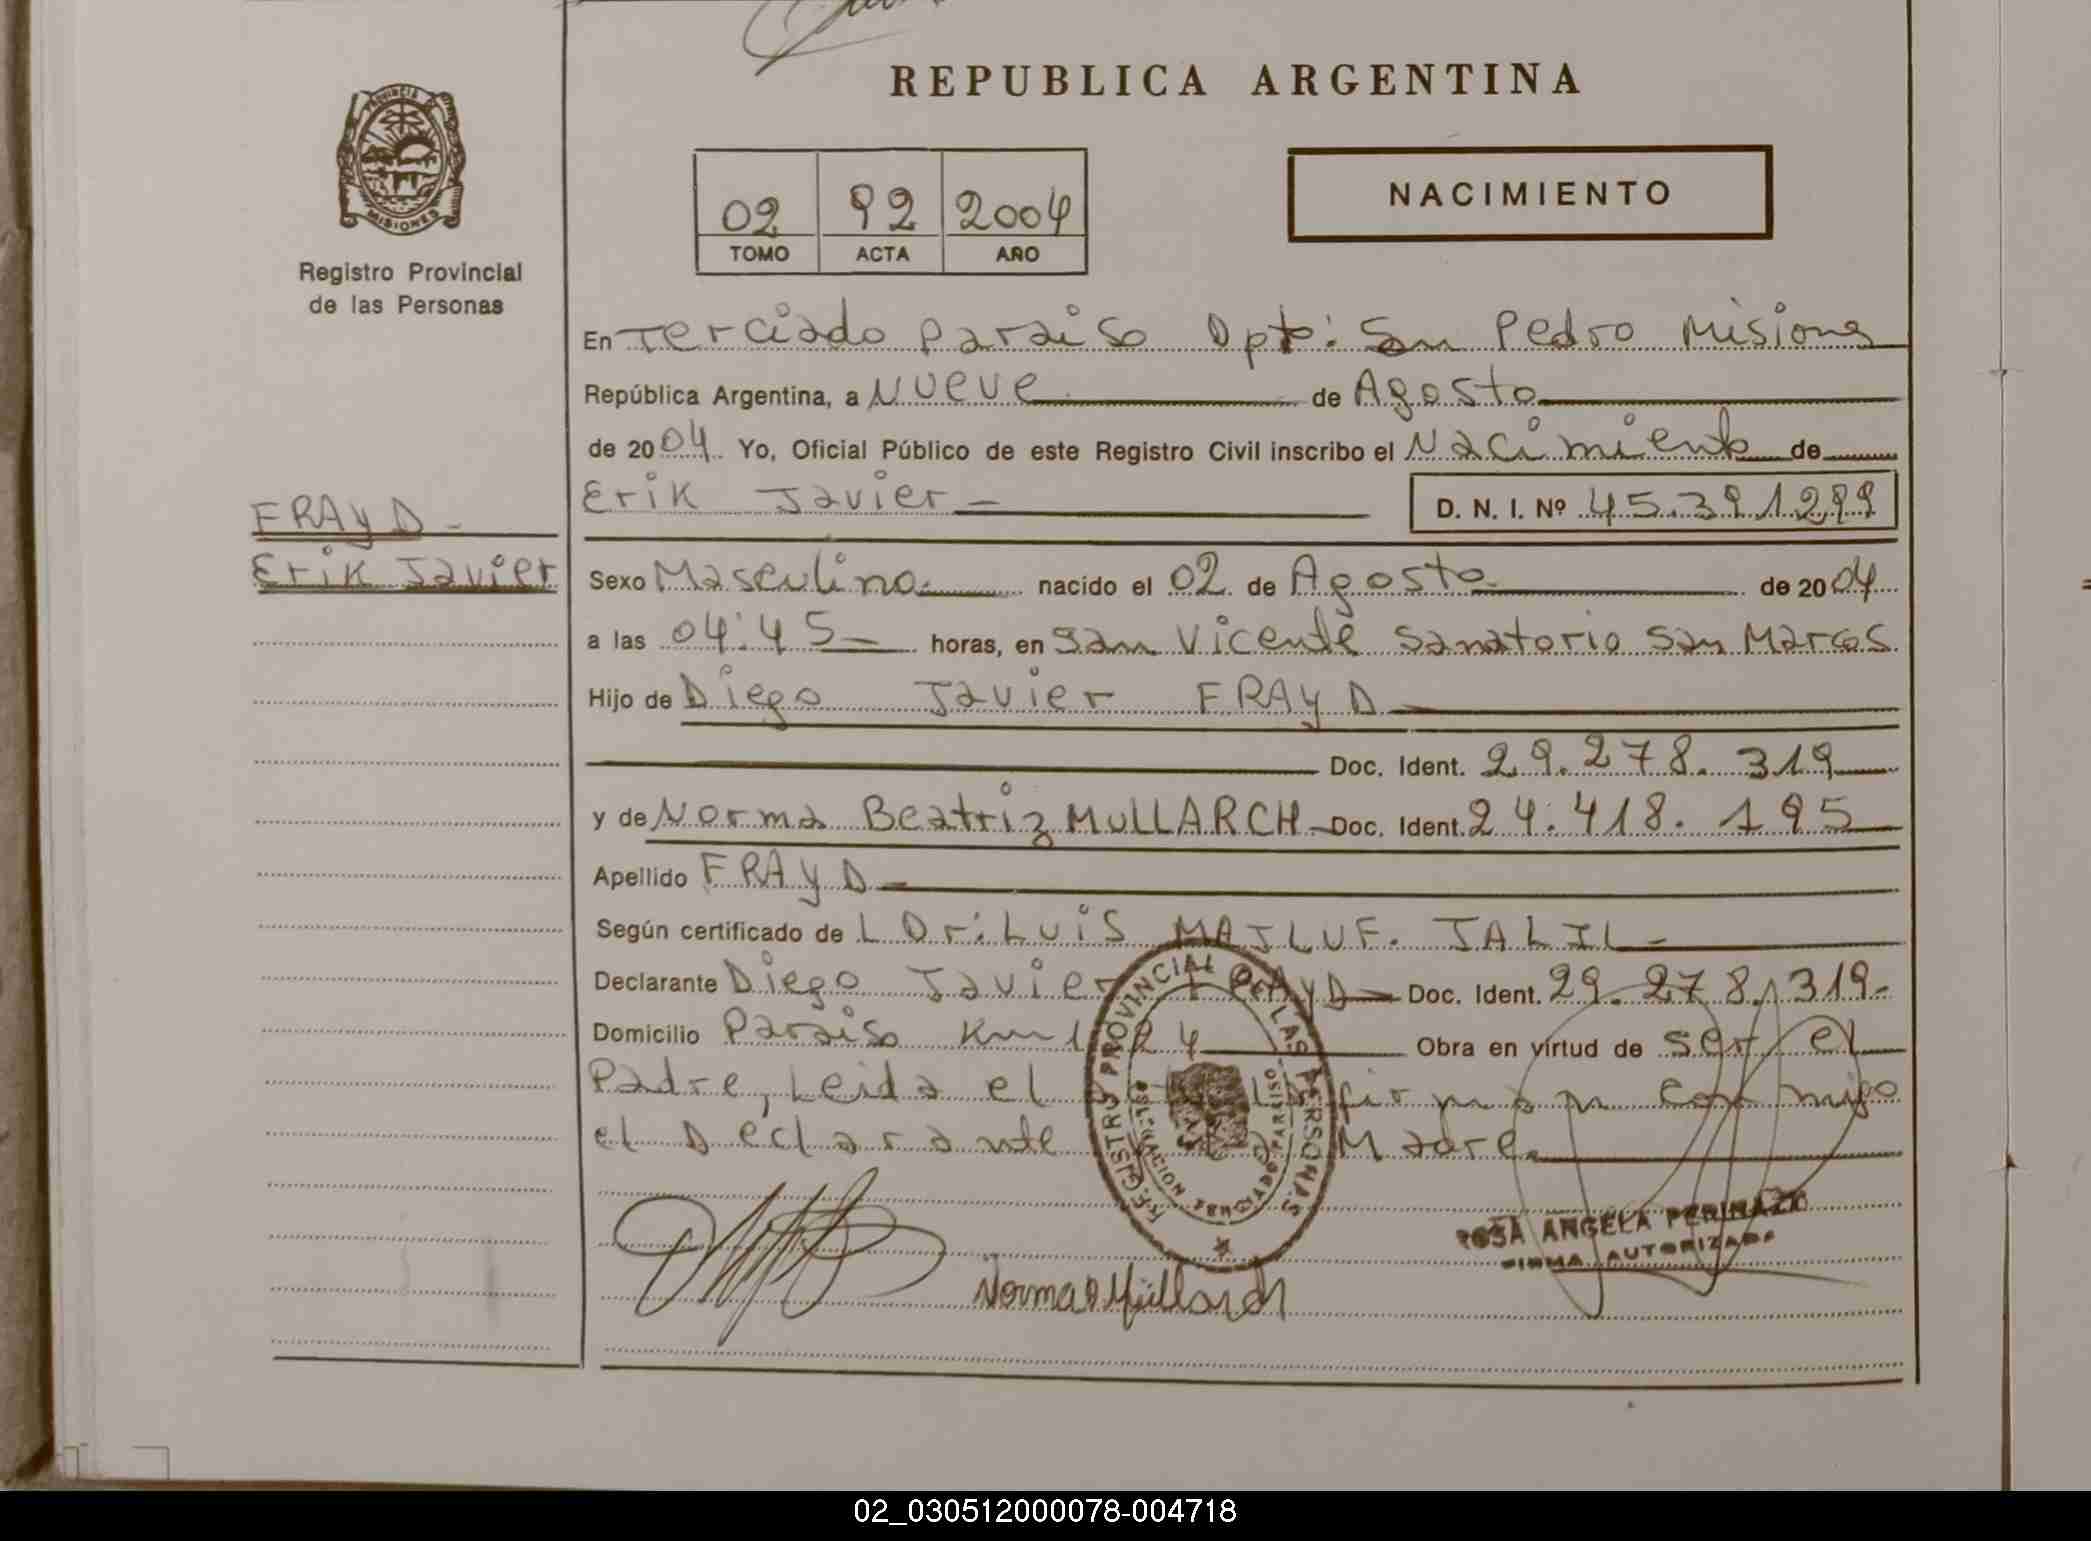 REPUBLICA ARGENTINA
PROVINCIA DE
MISIONES
Registro Provincial
de las Personas
02 92 2004
TOMO ACTA AÑO
NACIMIENTO
En Terciado Paraiso Dpto: San Pedro Misiones
República Argentina, a Nueve de Agosto
de 2004 Yo, Oficial Público de este Registro Civil inscribo el Nacimiento de
Erik Javier — D. N. I. Nº 45.391.299
FRAYD -
Erik Javier
Sexo Masculino. nacido el 02 de Agosto de 2004
a las 04:45 horas, en San Vicente Sanatorio San Marcos
Hijo de Diego Javier FRAYD
Doc. Ident. 29.278.319
y de Norma Beatriz MULLARCH Doc. Ident. 24.418.195
Apellido FRAYD
Según certificado de L Dr: Luis MAJLUF. JALIL
Declarante Diego Javier FRAYD Doc. Ident. 29.278.319.
Domicilio Paraiso Km 1 24 Obra en virtud de ser el
Padre, Leida el firman conmigo
el Declarante Madre.
REGISTRO PROVINCIAL DE LAS PERSONAS
DELEGACION TERCIADO PARAISO
Norma B Müllarch
ROSA ANGELA PERINAZZO
FIRMA AUTORIZADA
02_030512000078-004718